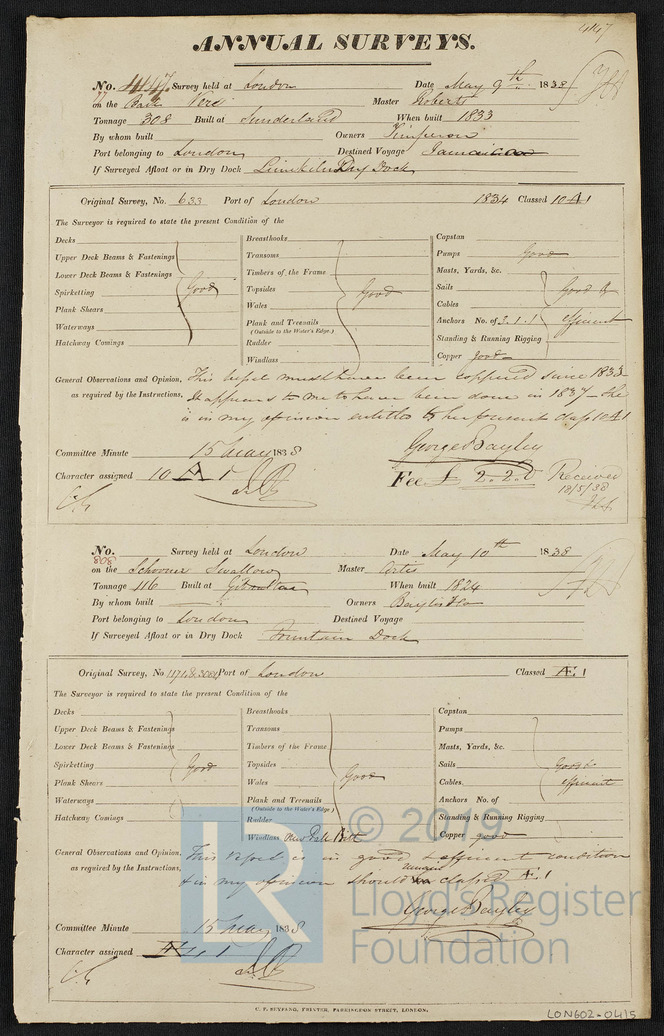 447
ANNUAL SURVEYS.
No. 447 Survey held at London Date May 9th 1838
77 on the Bark Vere Master Roberts
Tonnage 308 Built at Sunderland When built 1833
By whom built Owners
Port belonging to London Destined Voyage Jamaica
If Surveyed Afloat or in Dry Dock Limekiln Dry Dock
Original Survey, No. 633 Port of London 1834 Classed 10 A 1
The Surveyor is required to state the present Condition of the
Decks Breasthooks Capstan
Upper Deck Beams & Fastenings Transoms Pumps Good
Lower Deck Beams & Fastenings Timbers of the Frame Masts, Yards, &c.
Spirketting Good Topsides Good Sails Good &
Plank Shears Wales Cables
Waterways Plank and Treenails Anchors No. of 3.1.1 efficient
(Outside to the Water's Edge.)
Hatchway Comings Rudder Standing & Running Rigging
Windlass Copper good
General Observations and Opinion, This vessel must have been coppered since 1833
as required by the Instructions. It appears to me to have been done in 1837 – She
is in my opinion entitled to her present class 10 A 1
Committee Minute 15 May 1838 George Bayley
Character assigned 10 A 1 Fee £ 2.2.0 Received
12/5/38
No. Survey held at London Date May 10th 1838
808 on the Schooner Swallow Master
Tonnage 116 Built at Gibraltar When built 1824
By whom built Owners Baylis & Co
Port belonging to London Destined Voyage
If Surveyed Afloat or in Dry Dock Fountain Dock
Original Survey, No Port of London Classed A 1
The Surveyor is required to state the present Condition of the
Decks Breasthooks Capstan
Upper Deck Beams & Fastenings Transoms Pumps
Lower Deck Beams & Fastenings Timbers of the Frame Masts, Yards, &c.
Spirketting Good Topsides Sails Good &
Plank Shears Wales Good Cables efficient
Waterways Plank and Treenails Anchors No. of
(Outside to the Water's Edge.)
Hatchway Comings Rudder Standing & Running Rigging
Windlass New Pale Bitt Copper good
General Observations and Opinion, This vessel is in good & efficient condition
as required by the Instructions. & in my opinion should remain classed A 1
George Bayley
Committee Minute 15 May 1838
Character assigned A 1
LR
© 2019
Lloyd's Register
Foundation
C. F. SEYFANG, PRINTER, FARRINGDON STREET, LONDON.
LON602-0415